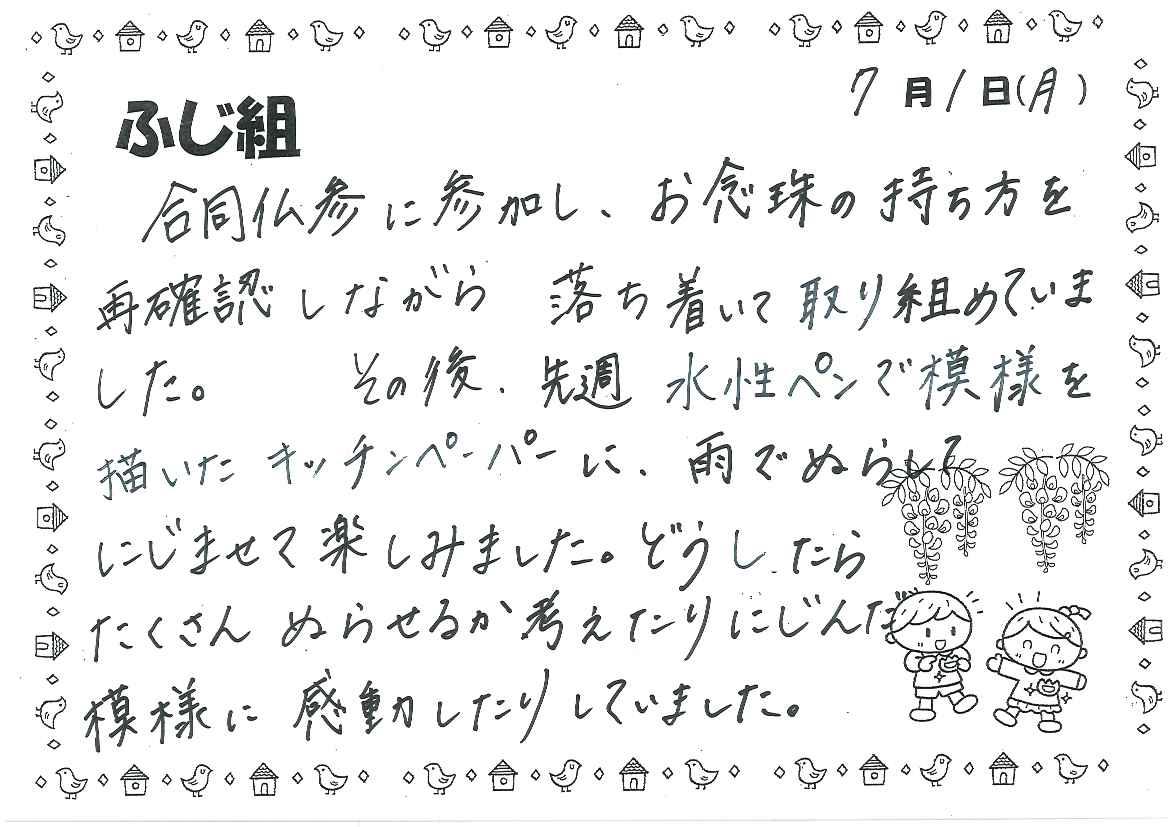 7月1日(月)
ふじ組
合同仏参に参加し、お念珠の持ち方を
再確認しながら 落ち着いて取り組めていま
した。 その後、先週 水性ペンで模様を
描いた キッチンペーパーに、雨でぬらして
にじませて楽しみました。どうしたら
たくさん ぬらせるか考えたりにじんだ
模様に 感動したりしていました。